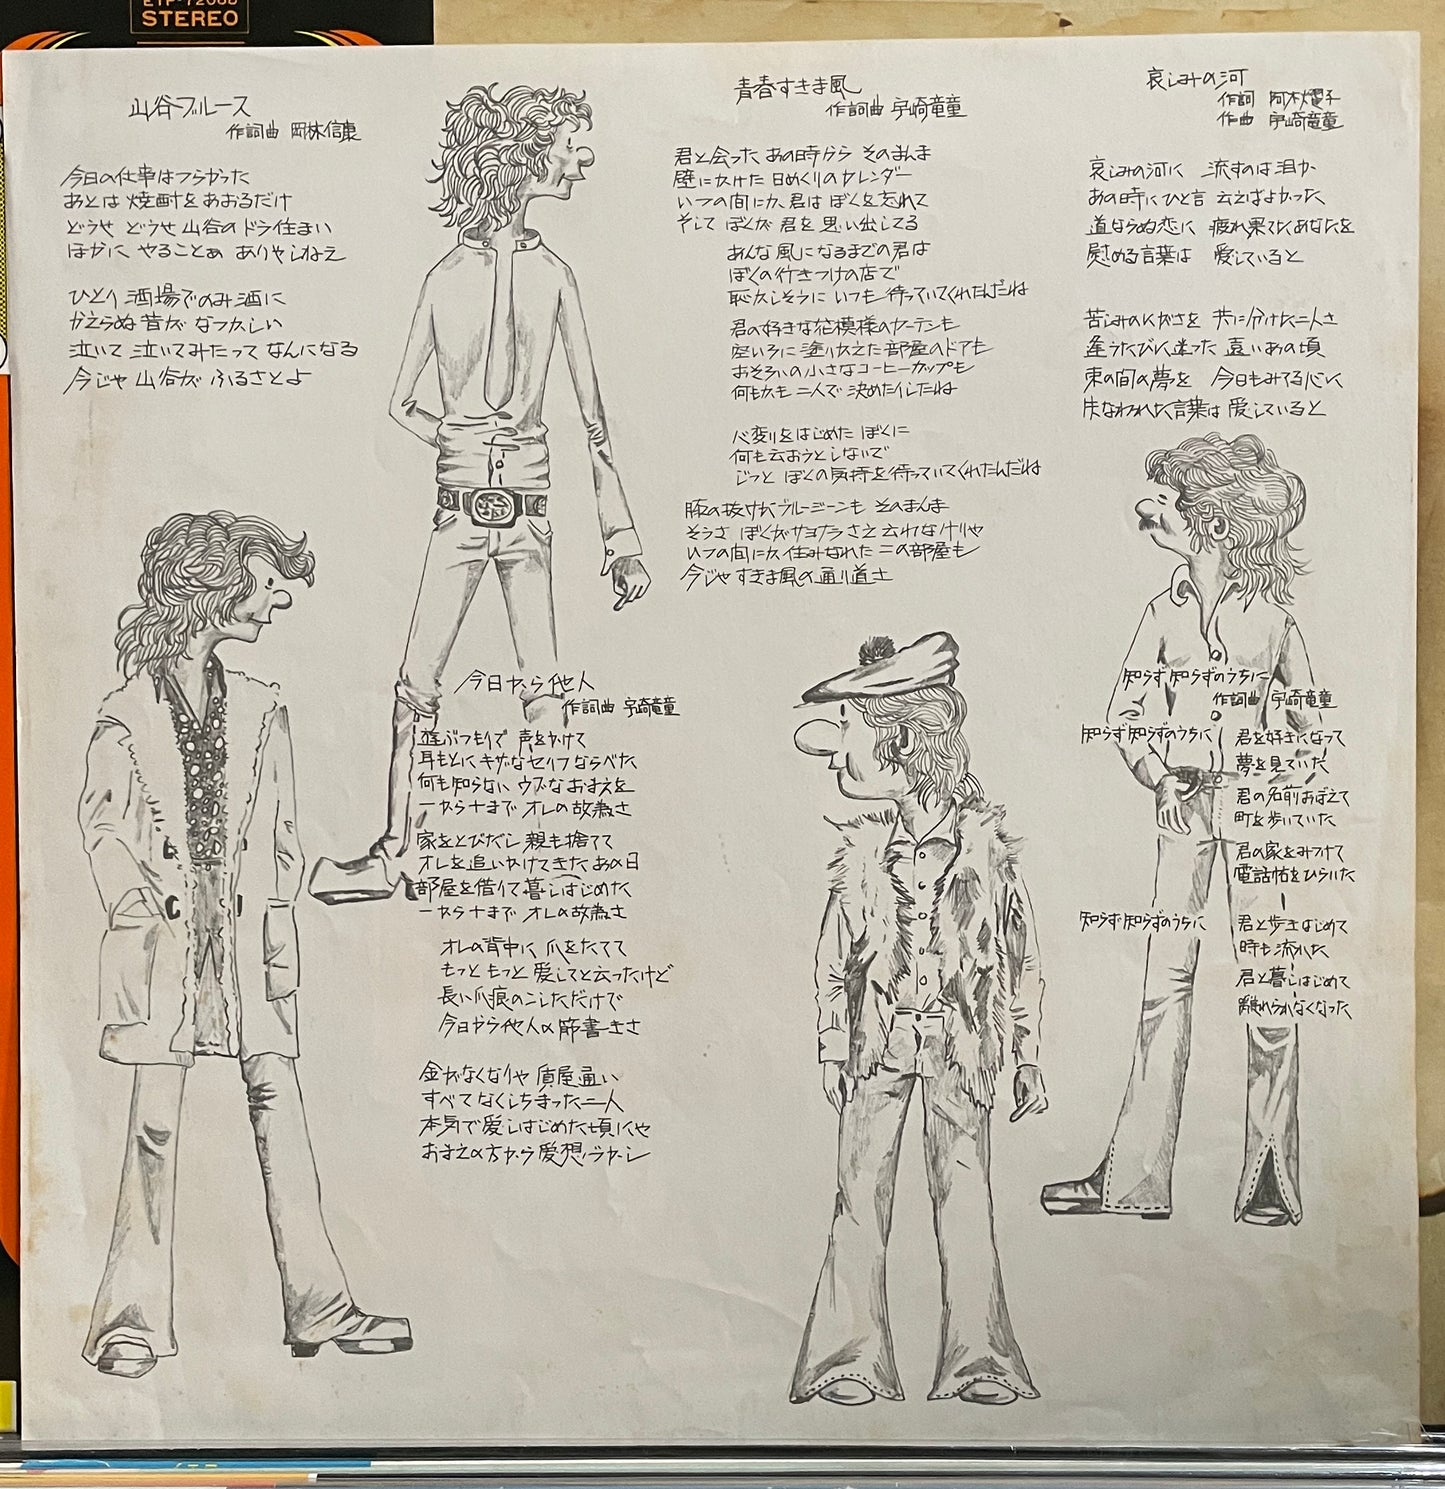 STEREO
山谷ブルース
作詞曲 岡林信康
今日の仕事はつらかった
あとは 焼酎をあおるだけ
どうせ どうせ 山谷のドヤ住まい
ほかに やることぁ ありゃしねえ
ひとり 酒場でのみ酒に
かえらぬ昔が なつかしい
泣いて 泣いてみたって なんになる
今じゃ 山谷が ふるさとよ
青春すきま風
作詞曲 宇崎竜童
君と会った あの時から そのまんま
壁にかけた 日めくりのカレンダー
いつの間にか 君は ぼくを忘れて
そして ぼくが 君を 思い出してる
あんな風になるまでの君は
ぼくの行きつけの店で
恥かしそうに いつも 待っていてくれたんだね
君の好きな花模様のカーテンも
空いろに 塗りかえた 部屋のドアも
おそろいの小さなコーヒーカップも
何もかも 二人で 決めたりしたね
心変りをはじめた ぼくに
何も云おうとしないで
じっと ぼくの気持を待っていてくれたんだね
膝の抜けたブルージーンも そのまんま
そうさ ぼくがサヨナラさえ 云わなけりゃ
いつの間にか 住みなれた この部屋も
今じゃ すきま風の通り道さ
哀しみの河
作詞 阿木燿子
作曲 宇崎竜童
哀しみの河に 流すのは泪か
あの時にひと言 云えばよかった
道ならぬ恋に 疲れ果てたあなたを
慰める言葉は 愛していると
苦しみのにがさを 共に分けた二人さ
逢うたびに迷った 遠いあの頃
束の間の夢を 今日もみてる心に
失なわれた言葉は 愛していると
今日から他人
作詞曲 宇崎竜童
遊ぶつもりで 声をかけて
耳もとに キザなセリフ ならべた
何も知らない ウブなおまえを
一から十まで オレの故為さ
家をとびだし 親も捨てて
オレを追いかけてきた あの日
部屋を借りて 暮しはじめた
一から十まで オレの故為さ
オレの背中に 爪をたてて
もっと もっと 愛してと云ったけど
長い爪痕のこしただけで
今日から他人の 筋書きさ
金がなくなりゃ 質屋通い
すべてなくしちまった二人
本気で愛しはじめた頃にゃ
おまえの方から 愛想づかし
知らず知らずのうちに
作詞曲 宇崎竜童
知らず知らずのうちに 君を好きになって
夢を見ていた
君の名前おぼえて
町を歩いていた
君の家をみつけて
電話帖をひらいた
知らず知らずのうちに 君と歩きはじめて
時も流れた
君と暮しはじめて
離れられなくなった